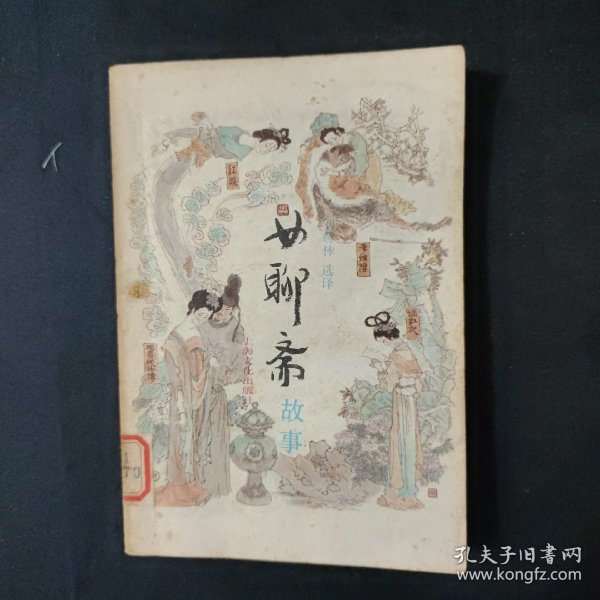 女聊斋
故事
林 选译
上海文化出版社
红线
170
孔夫子旧书网
www.kongfz.com